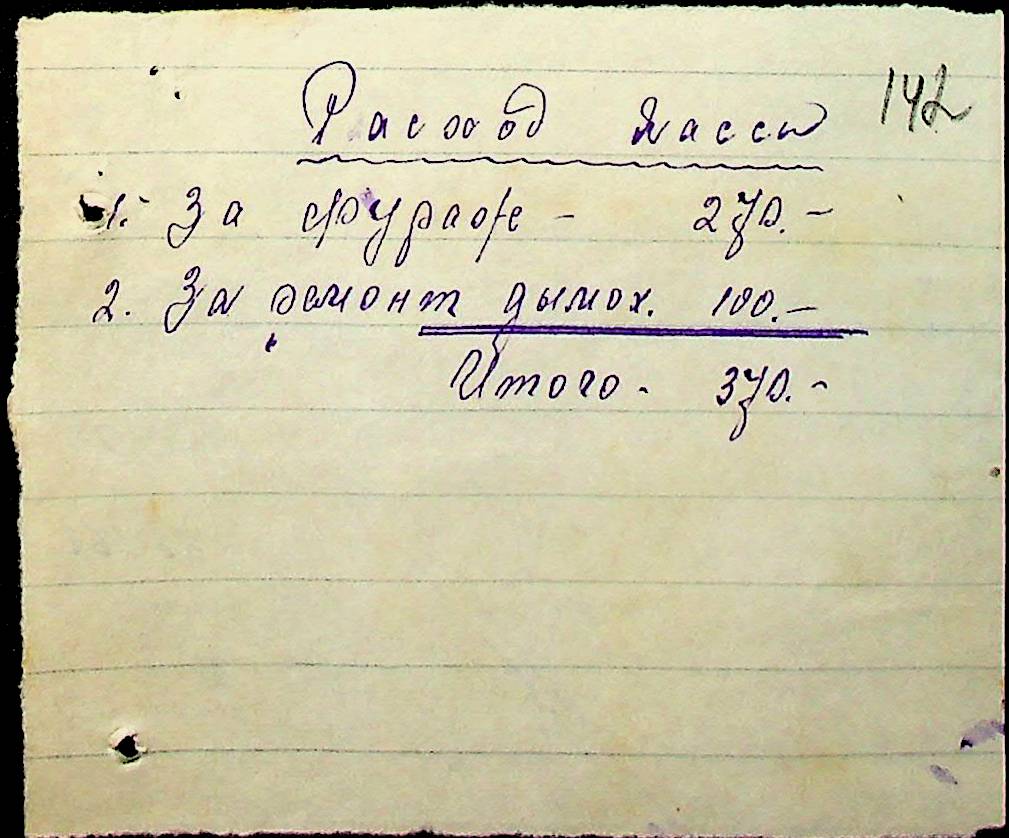 142
Расход кассы
1. За фураж - 270.-
2. За ремонт дымох. 100.-
Итого - 370.-